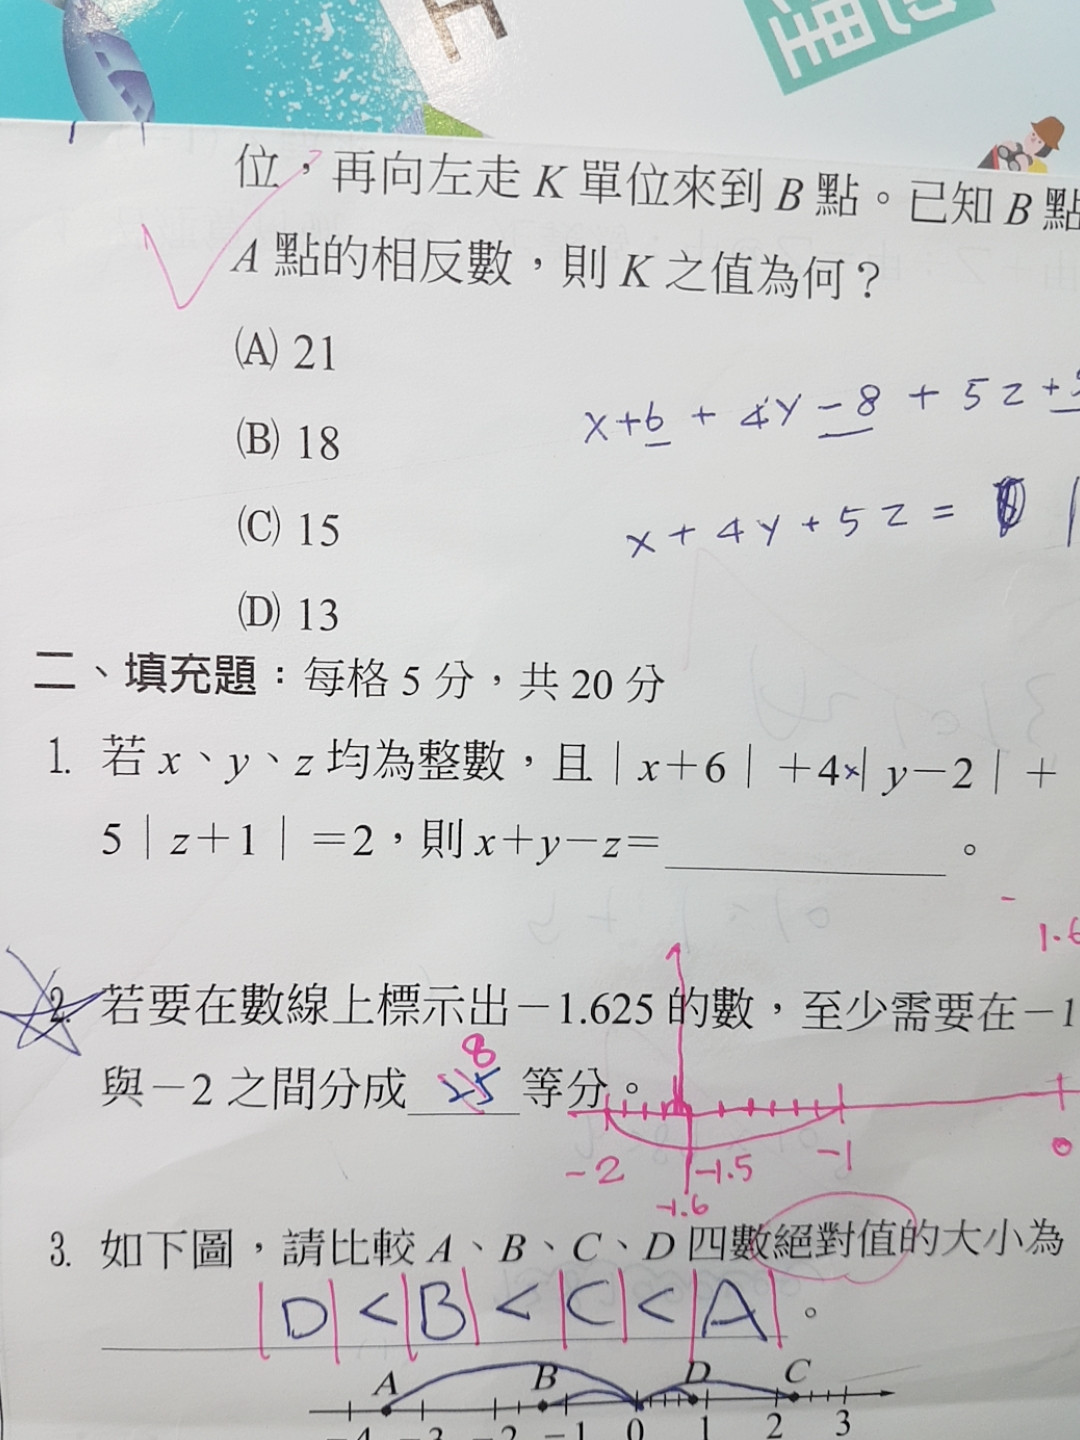 位，再向左走 K 單位來到 B 點。已知 B 點
A 點的相反數，則 K 之值為何？
(A) 21
(B) 18
(C) 15
(D) 13
x+6 + 4y-8 + 5z+
x+4y+5z=
二、填充題：每格 5 分，共 20 分
1. 若 x、y、z 均為整數，且｜x＋6｜＋4×｜y－2｜＋
5｜z＋1｜＝2，則 x＋y－z＝ 。
2. 若要在數線上標示出－1.625 的數，至少需要在－1
8
與－2 之間分成 25 等分。
-2 -1.6 -1.5 -1 0
3. 如下圖，請比較 A、B、C、D 四數絕對值的大小為
|D|<|B|<|C|<|A| 。
A B D C
－4 －3 －2 －1 0 1 2 3